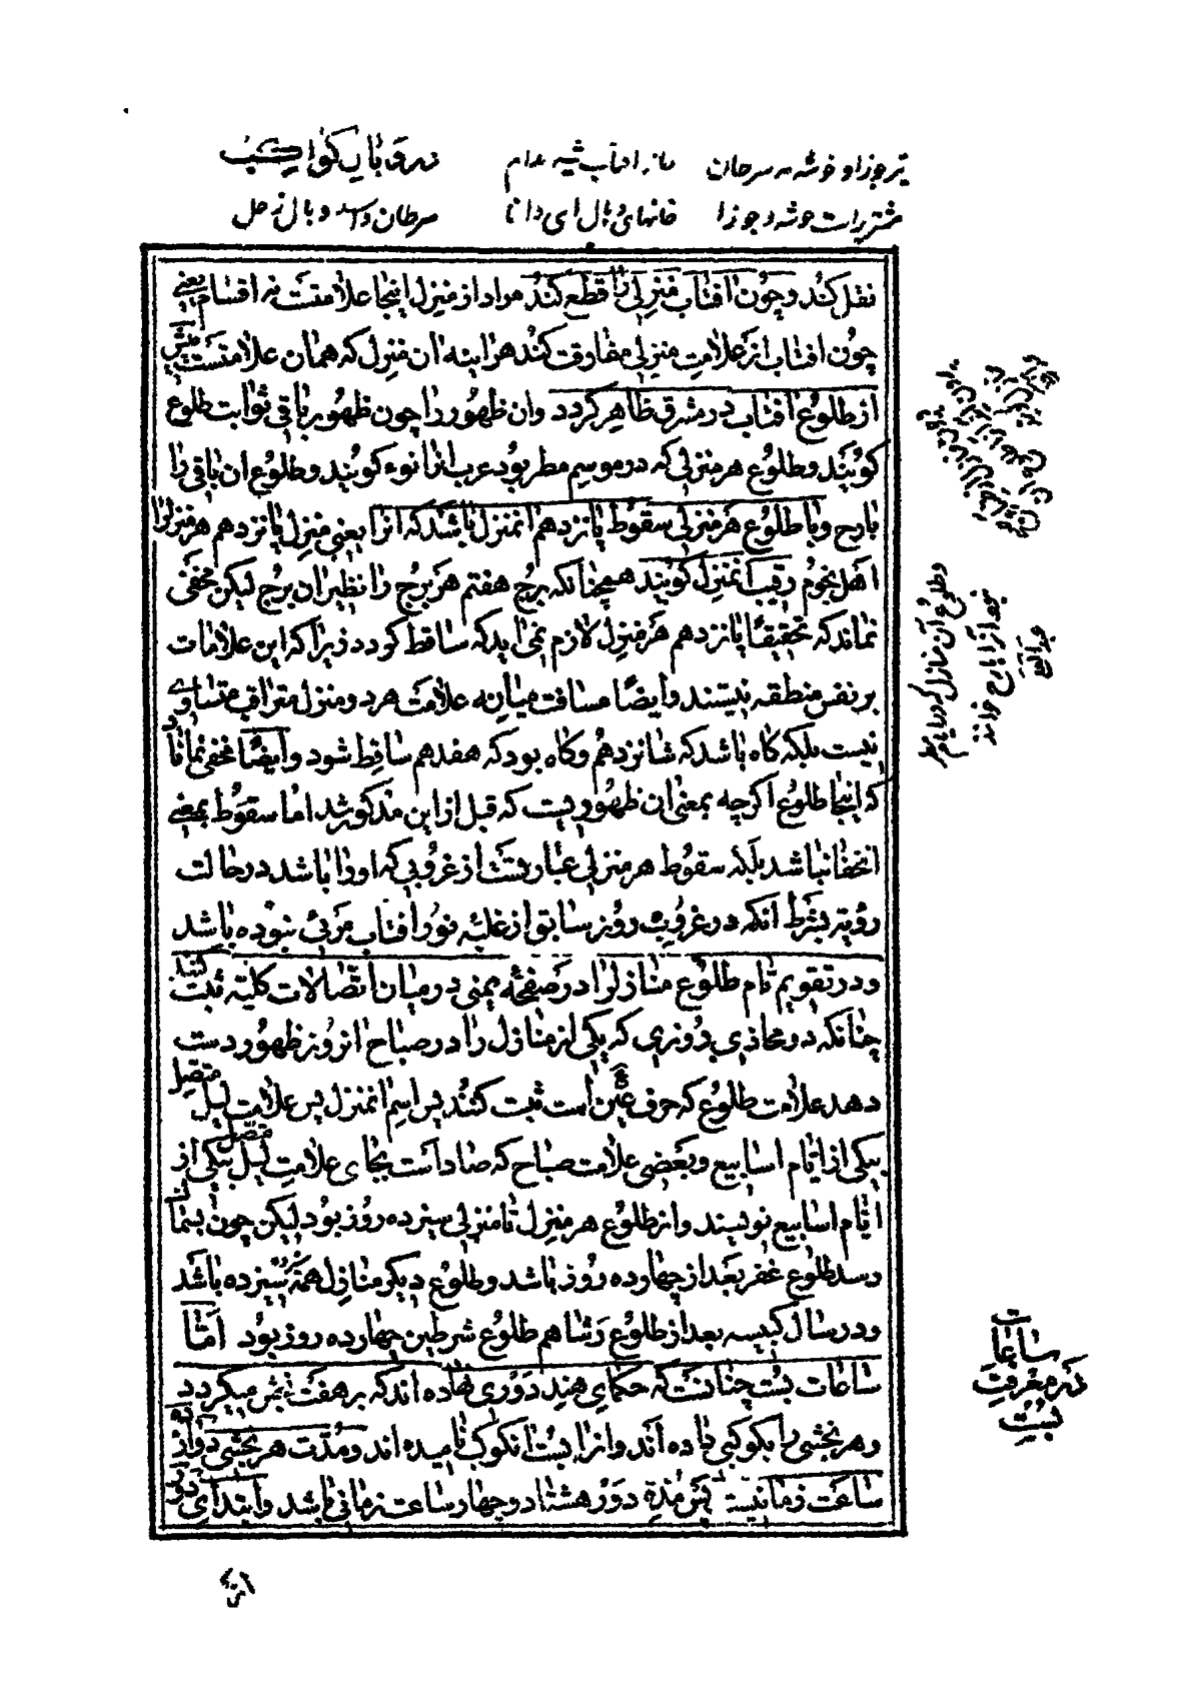 در وبال کواکب
خانهای وبال ای دانا
سرطان و اسد وبال زحل
نقل کند و چون افتاب منزلی را قطع کند مراد از منزل اینجا علامتست نه اقسام یعنی
چون افتاب از علامت منزلی مفارقت کند هراینه ان منزل که همان علامتست پیش
از طلوع افتاب در مشرق ظاهر کردد وان ظهور را چون ظهور باقی ثوابت طلوع
کویند و طلوع هر منزلی که در موسم مطر بود عرب انرا نوء کویند و طلوع ان باقی را
بارح و با طلوع هر منزلی سقوط پانزدهم انمنزل باشد که انرا یعنی منزل پانزدهم هر منزلرا
اهل نجوم رقیب انمنزل کویند همچنانکه برج هفتم هر برج را نظیر ان برج لیکن مخفی
نماند که تحقیقا پانزدهم هر منزل لازم نمی اید که ساقط کردد زیرا که این علامات
بر نفس منطقه نیستند وایضا مسافت میانه علامت هر دو منزل متراقب متساوی
نیست بلکه کاه باشد که شانزدهم و کاه بود که هفدهم ساقط شود وایضا مخفی نماناد
که اینجا طلوع اکرچه بمعنی ان ظهوریست که قبل از این مذکور شد اما سقوط بمعنی
اختفا نباشد بلکه سقوط هر منزلی عبارتست از غروبی که اورا باشد در حالت
رؤیة بشرط انکه در غروب روز سابق از غلبه نور افتاب مرئی نبوده باشد
ودر تقویم تام طلوع منازلرا در صفحه یمنی در میان اتصالات کلیه ثبت کنند
چنانکه در محاذی روزی که یکی از منازل را در صباح انروز ظهور دست
دهد علامت طلوع که حرف عین است ثبت کنند پس اسم انمنزل پس علامت لیل متصل
بیکی از ایام اسابیع و بعضی علامت صباح که صاد است بجای علامت لیل متصل بیکی از
ایام اسابیع نویسند و از طلوع هر منزل تا منزلی سیزده روز بود لیکن چون بسماک
رسد طلوع غفر بعد از چهارده روز باشد و طلوع دیکر منازل همه سیزده باشد
ودر سال کبیسه بعد از طلوع رشا هم طلوع شرطین چهارده روز بود اما
ساعات بست چنانست که حکمای هند دوری نهاده اند که بر هفت بخش میکردد
و هر بخشی را بکوکبی داده اند و انرا بست انکوکب نامیده اند و مدت هر بخشی دوازده
ساعت زمانیست پس مدة دور هشتاد و چهار ساعت زمانی باشد وابتدای دور
وطلوع آن منازل که در ایام مطر
نبود آنرا بارح خوانند
عبد العلی
ساعات
در معرفت
بست
از